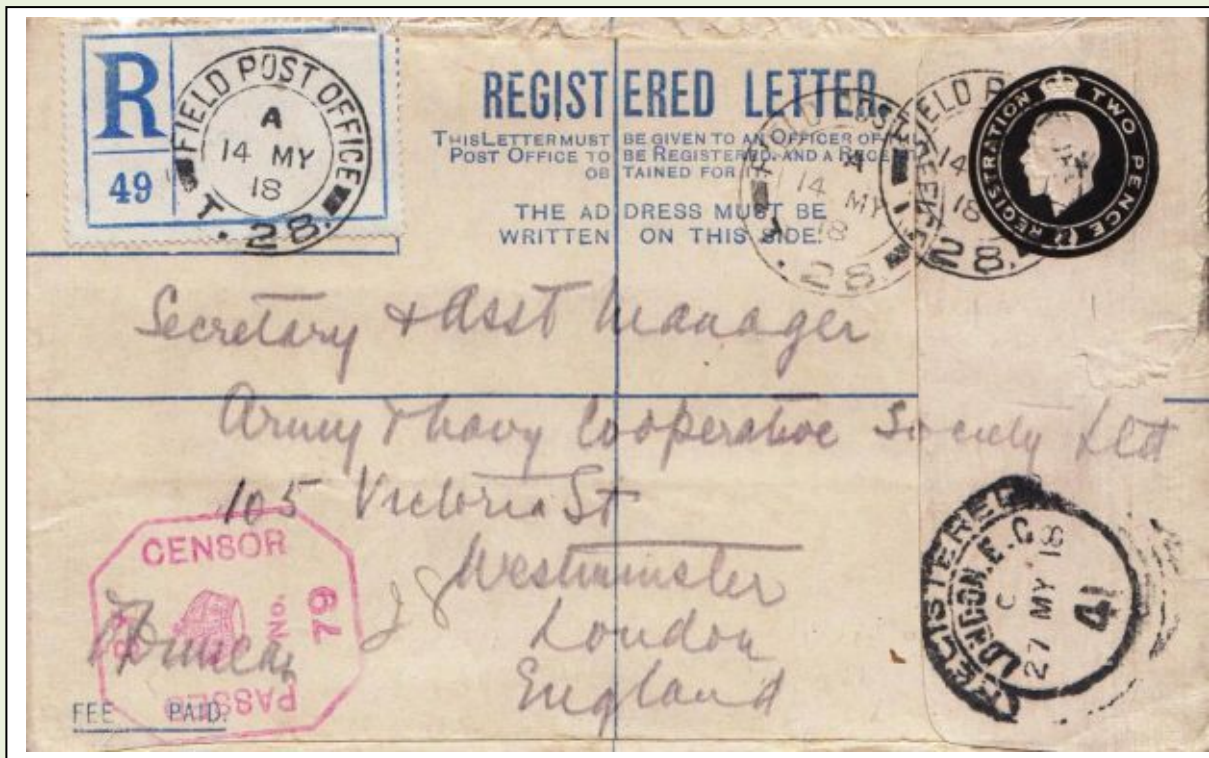 R
49
FIELD POST OFFICE
A
14 MY
18
T.28.
REGISTERED LETTER.
THIS LETTER MUST BE GIVEN TO AN OFFICER OF THE
POST OFFICE TO BE REGISTERED, AND A RECEIPT
OBTAINED FOR IT.
THE ADDRESS MUST BE
WRITTEN ON THIS SIDE.
A
14
MY
18
28
FIELD P
14
18
28.
REGISTRATION TWO PENCE
Secretary & Asst Manager
Army & Navy Cooperative Society Ltd
105 Victoria St
Westminster
London
England
CENSOR
No.
79
PASSED
Duncan
28
FEE PAID.
REGISTERED
LONDON.E.C.
C
27 MY 18
41